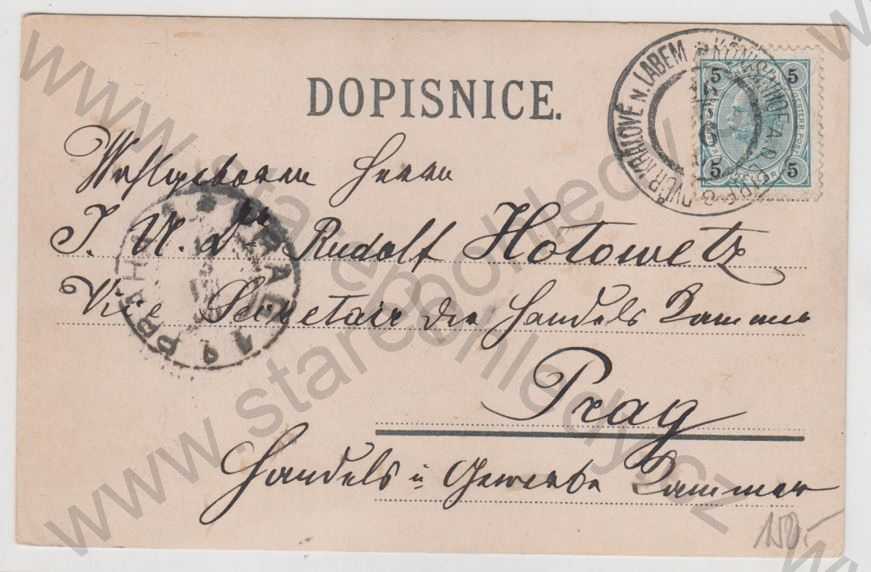 DOPISNICE.
KÖNIGINHOF A.D. ELBE DVŮR KRÁLOVÉ N. LABEM
5 5
5 5
Wohlgeboren Herrn
J. U. Dr Rudolf Hotowetz
Vice Secretair der Handels Kammer
PRAG
PRAHA
1
Prag
Handels u Gewerbe Kammer
150,-
www.starepohledy.cz